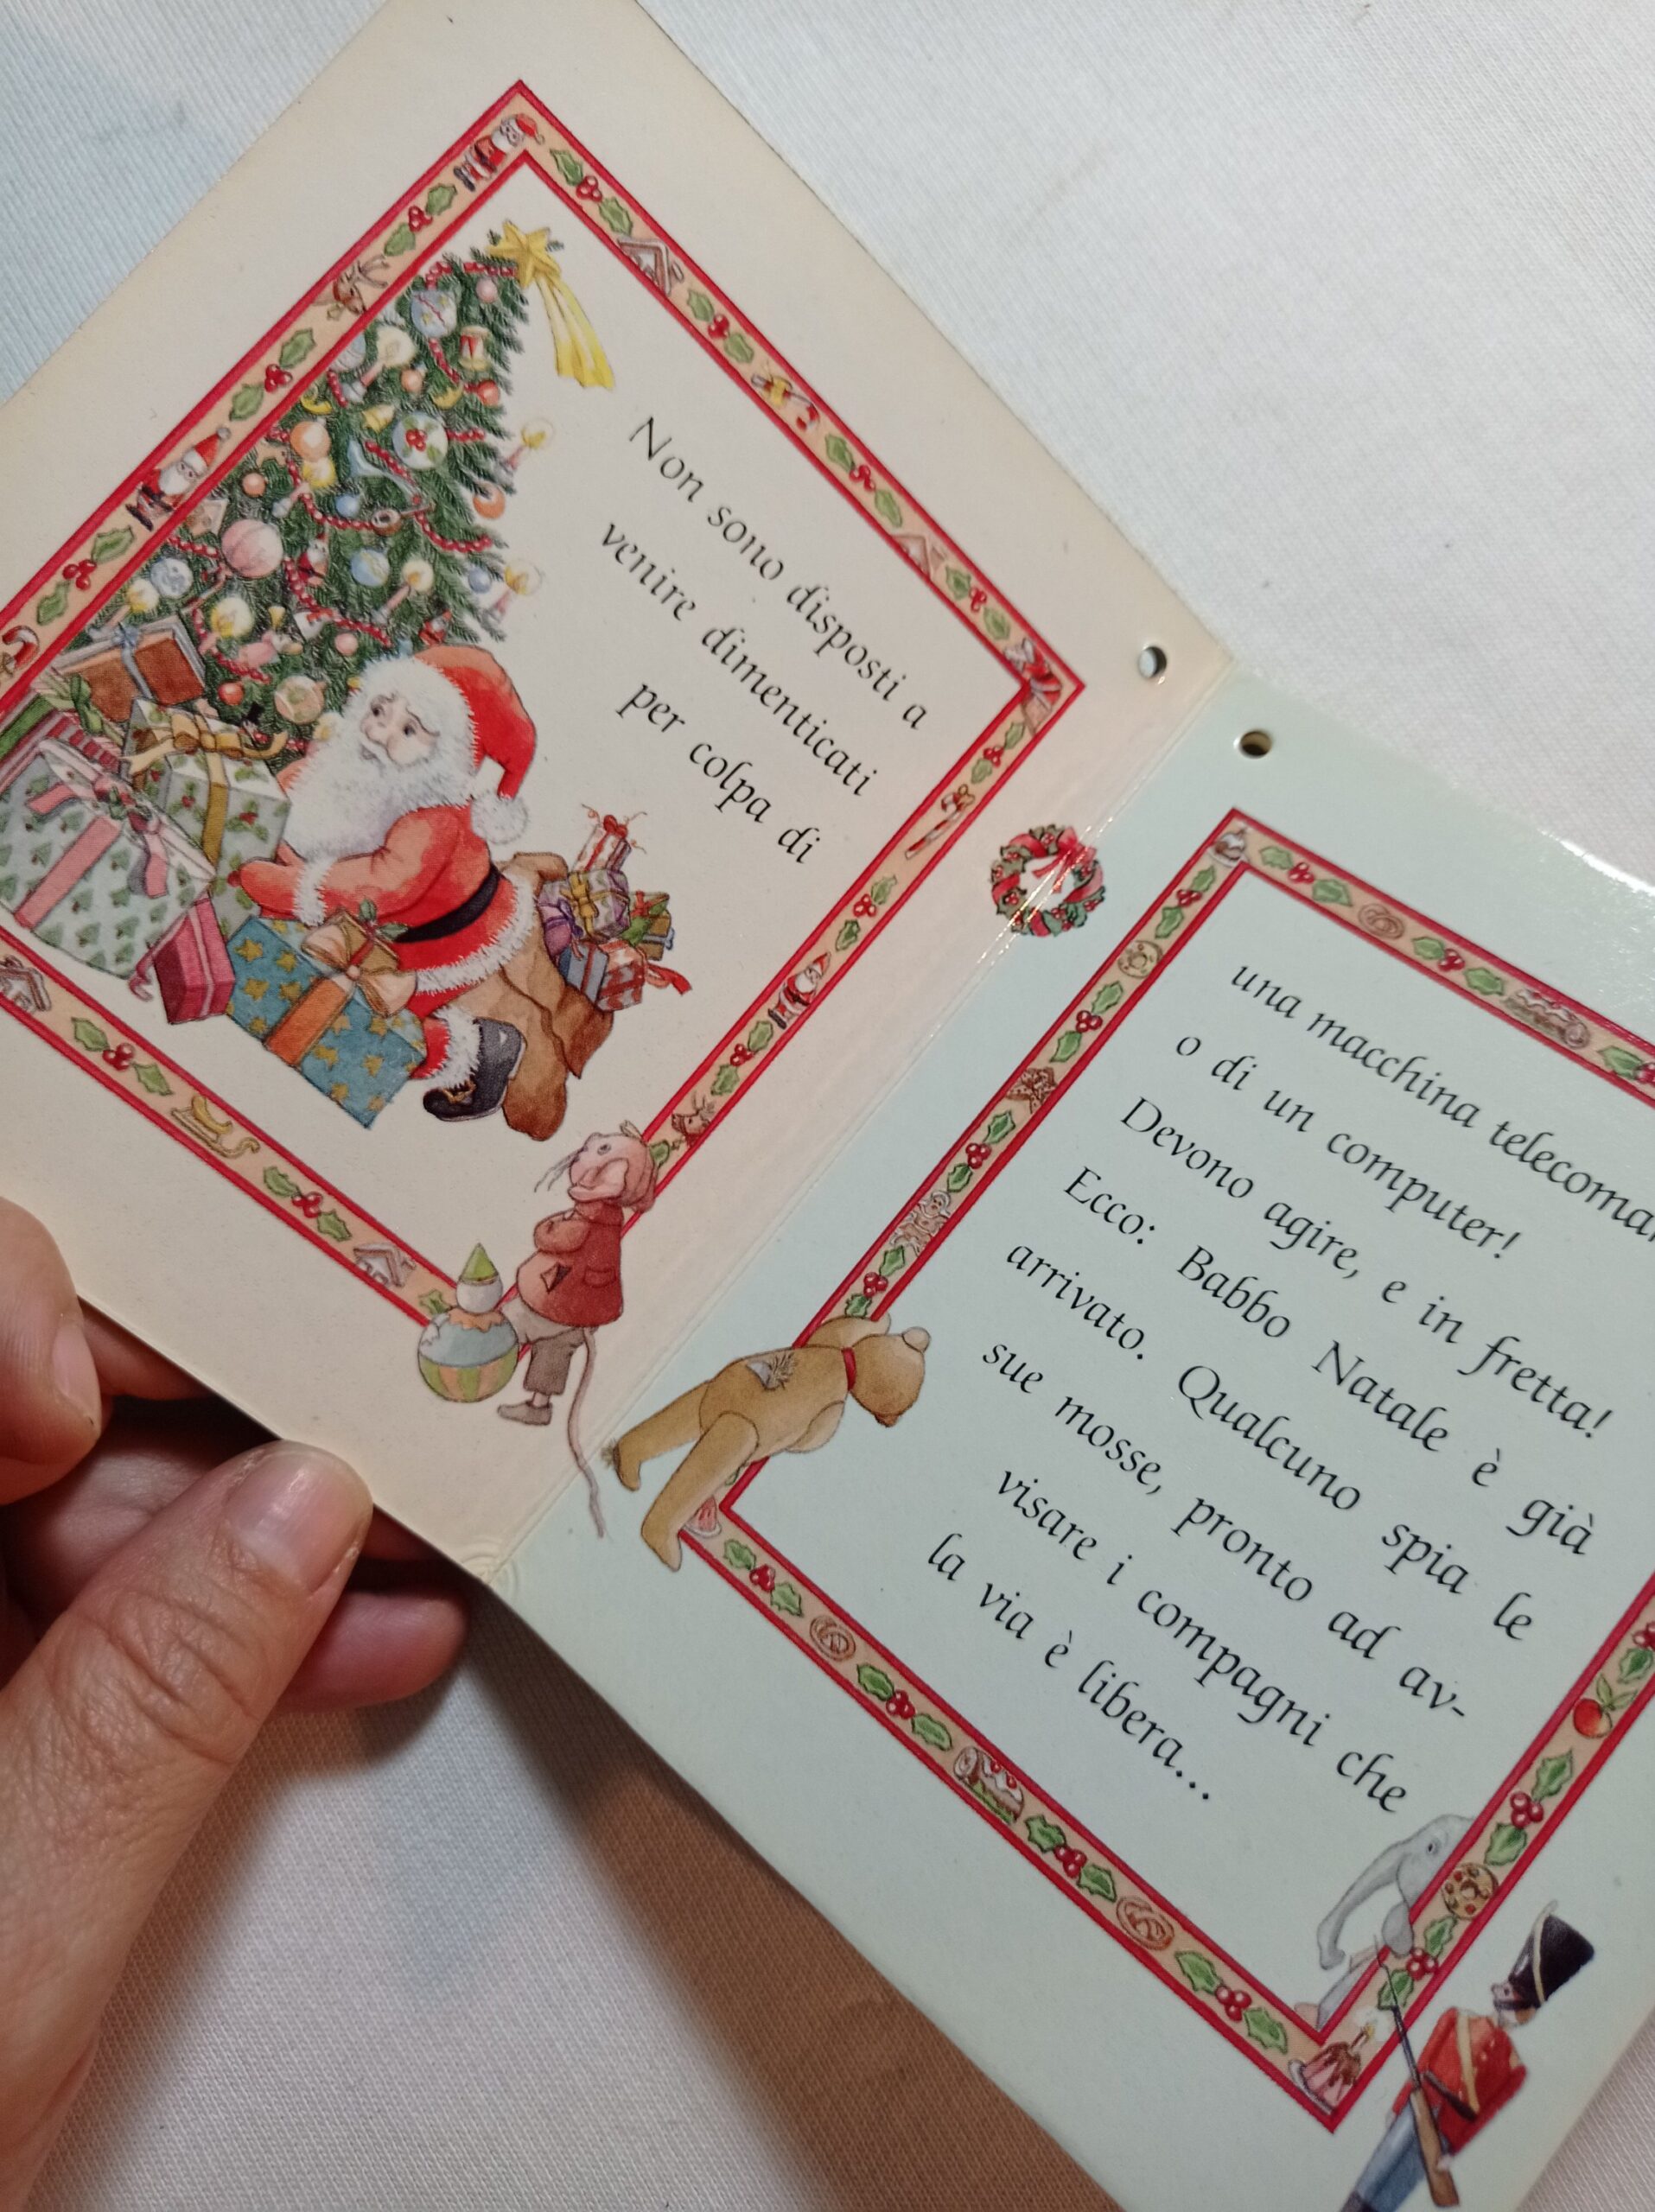 Non sono disposti a
venire dimenticati
per colpa di
una macchina
o di un computer!
Devono agire, e in fretta!
Ecco: Babbo Natale è già
arrivato. Qualcuno spia le
sue mosse, pronto ad av-
visare i compagni che
la via è libera...